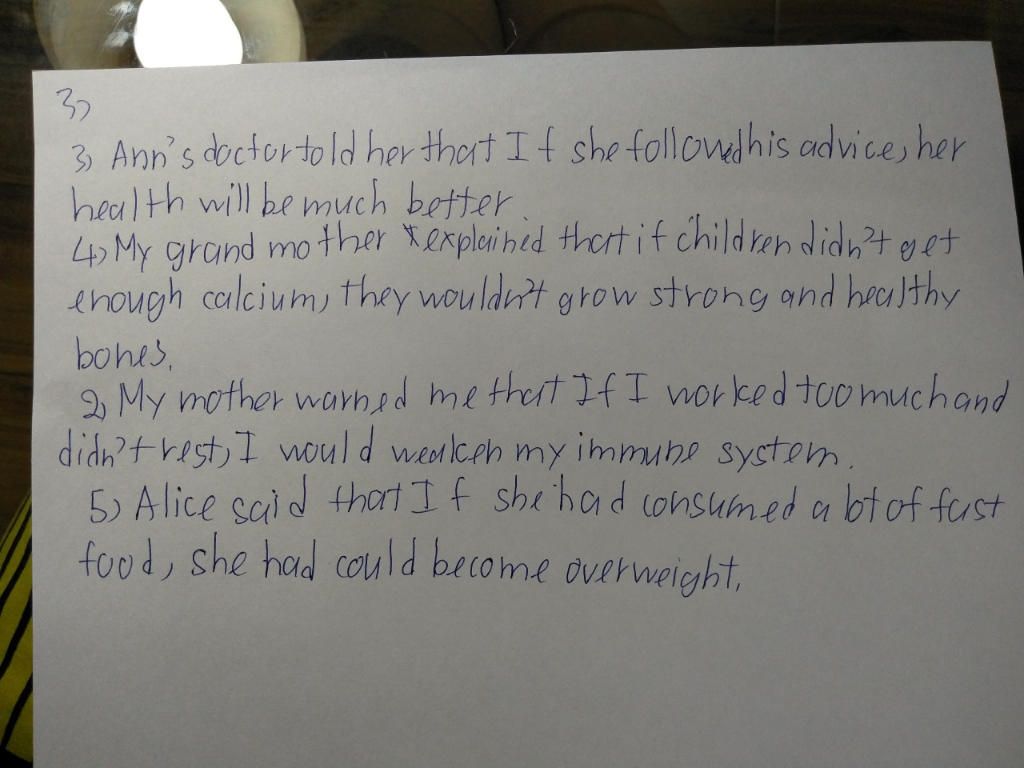 3)
3) Ann's doctor told her that If she followed his advice, her
health will be much better.
4) My grand mother explained that if children didn't get
enough calcium, they wouldn't grow strong and healthy
bones.
2) My mother warned me that If I worked too much and
didn't rest, I would weaken my immune system.
5) Alice said that If she had consumed a lot of fast
food, she had could become overweight.